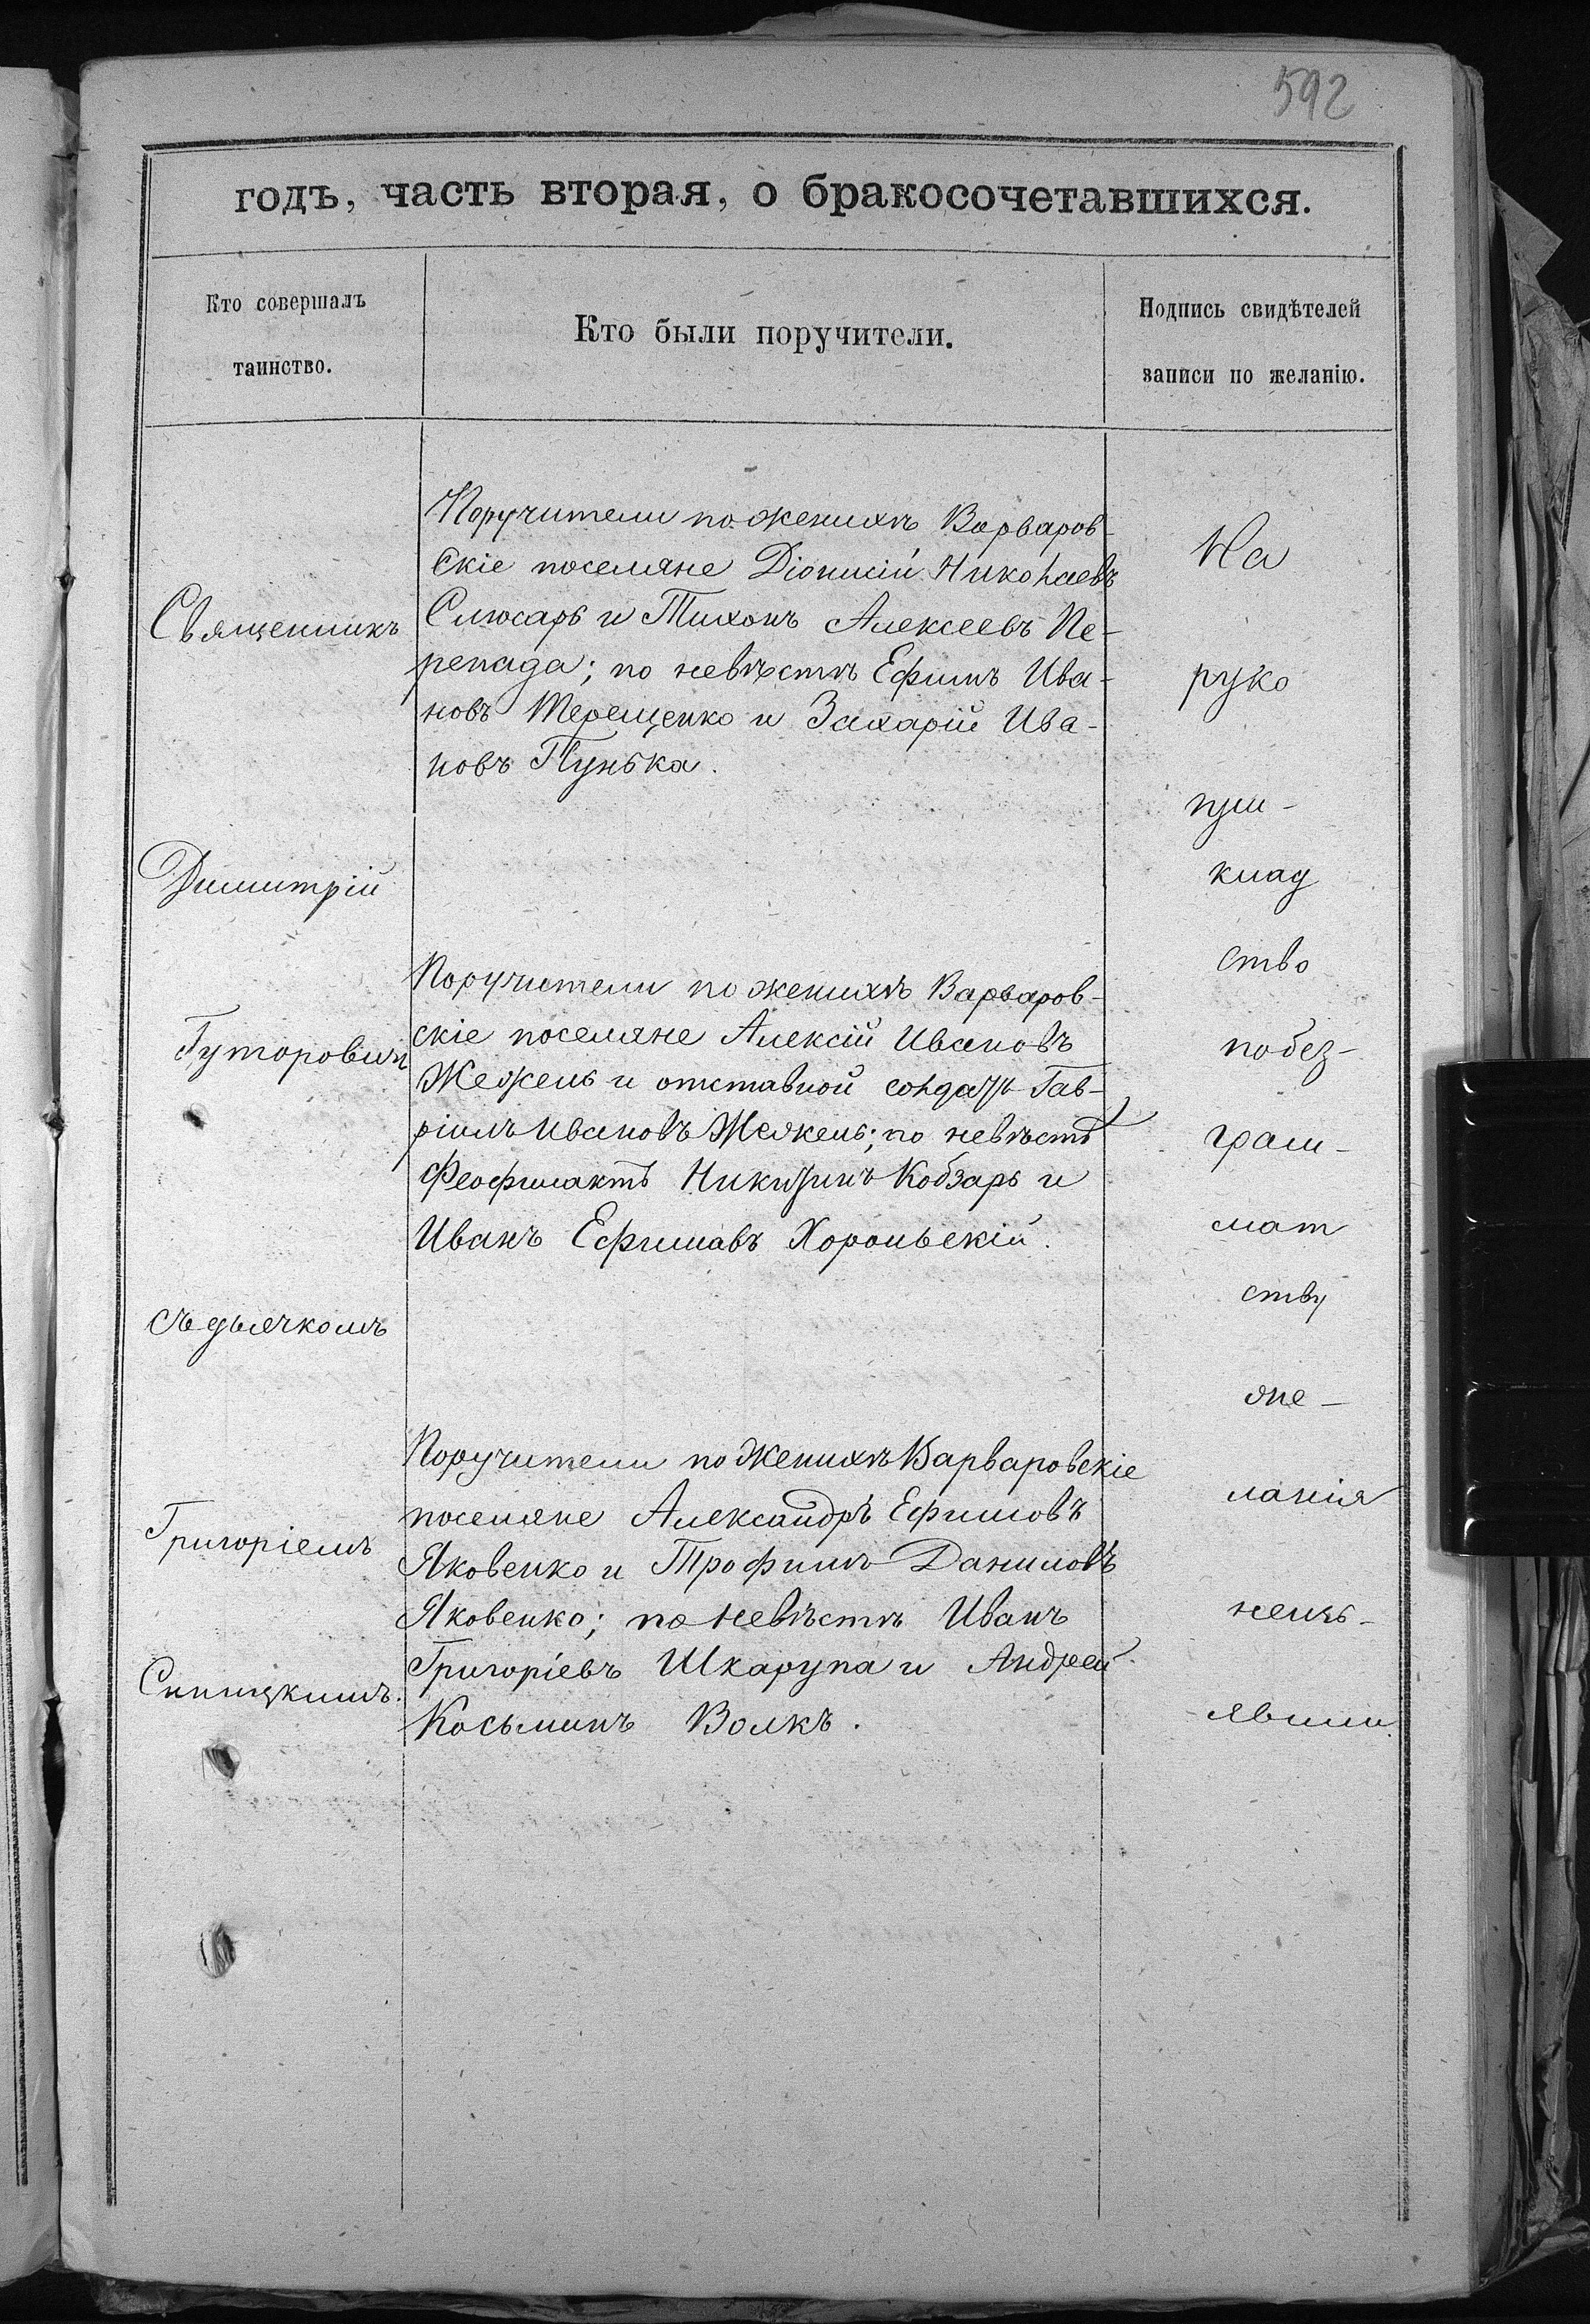 592
годъ, часть вторая, о бракосочетавшихся.
Кто совершалъ
таинство.
Кто были поручители.
Подпись свидѣтелей
записи по желанію.
Священникъ
Димитрій
Гуторовичъ
съ дьячкомъ
Григоріемъ
Синицкимъ.
Поручители по женихѣ Варваров-
скіе поселяне Діонисій Николаевъ
Слюсарь и Тихонъ Алексеевъ Пе-
репада; по невѣстѣ Ефимъ Ива-
новъ Терещенко и Захарій Ива-
новъ Пунька.
Поручители по женихѣ Варваров-
скіе поселяне Алексій Ивановъ
Жежель и отставной солдатъ Гав-
ріилъ Ивановъ Жежель; по невѣстѣ
Феофилактъ Никитинъ Кобзарь и
Иванъ Ефимавъ Хорольскій.
Поручители по женихѣ Варваровскіе
поселяне Александръ Ефимовъ
Яковенко и Трофимъ Даниловъ
Яковенко; по невѣстѣ Иванъ
Григоріевъ Шкарупа и Андрей
Косьминъ Волкъ.
На
руко
при-
клад
ство
по без-
грам-
мат
ству
же-
ланія
неизъ-
явили.